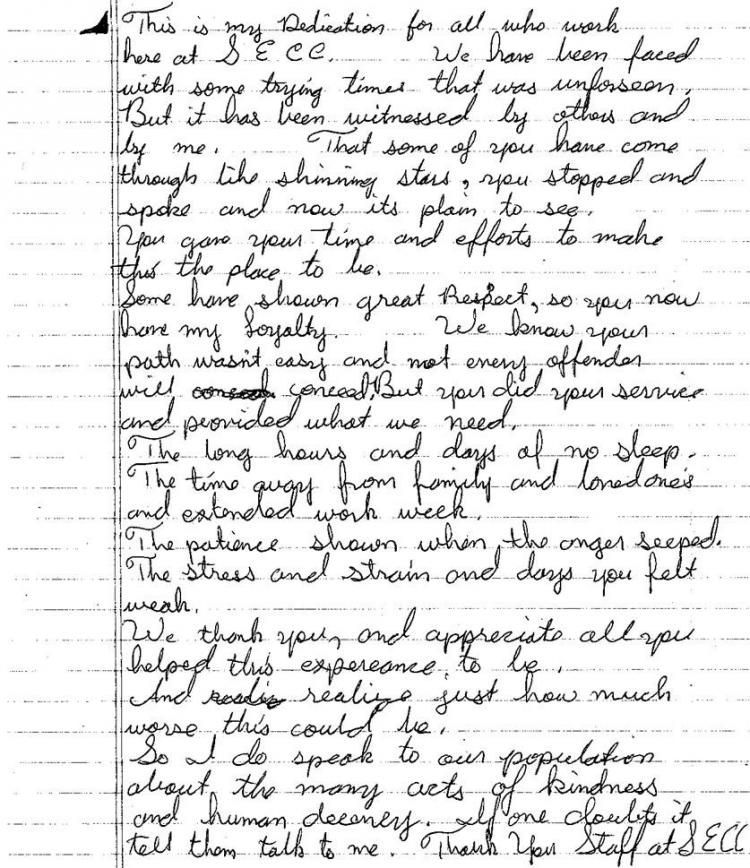 This is my Dedication for all who work
here at S E C C. We have been faced
with some trying times that was unforseen.
But it has been witnessed by others and
by me. That some of you have come
through like shinning stars, you stopped and
spoke and now its plain to see.
You gave your time and efforts to make
this the place to be.
Some have shown great Respect, so you now
have my Loyalty. We know your
path wasn't easy and not every offender
will conceed. But you did your service
and provided what we need.
The long hours and days of no sleep.
The time away from family and lovedone's
and extended work week.
The patience shown when the anger seeped.
The stress and strain and days you felt
weak.
We thank you, and appreciate all you
helped this expereance to be.
And realize just how much
worse this could be.
So I do speak to our population
about the many acts of kindness
and human decency. If one doubts it
tell them talk to me. Thank You Staff at SECC